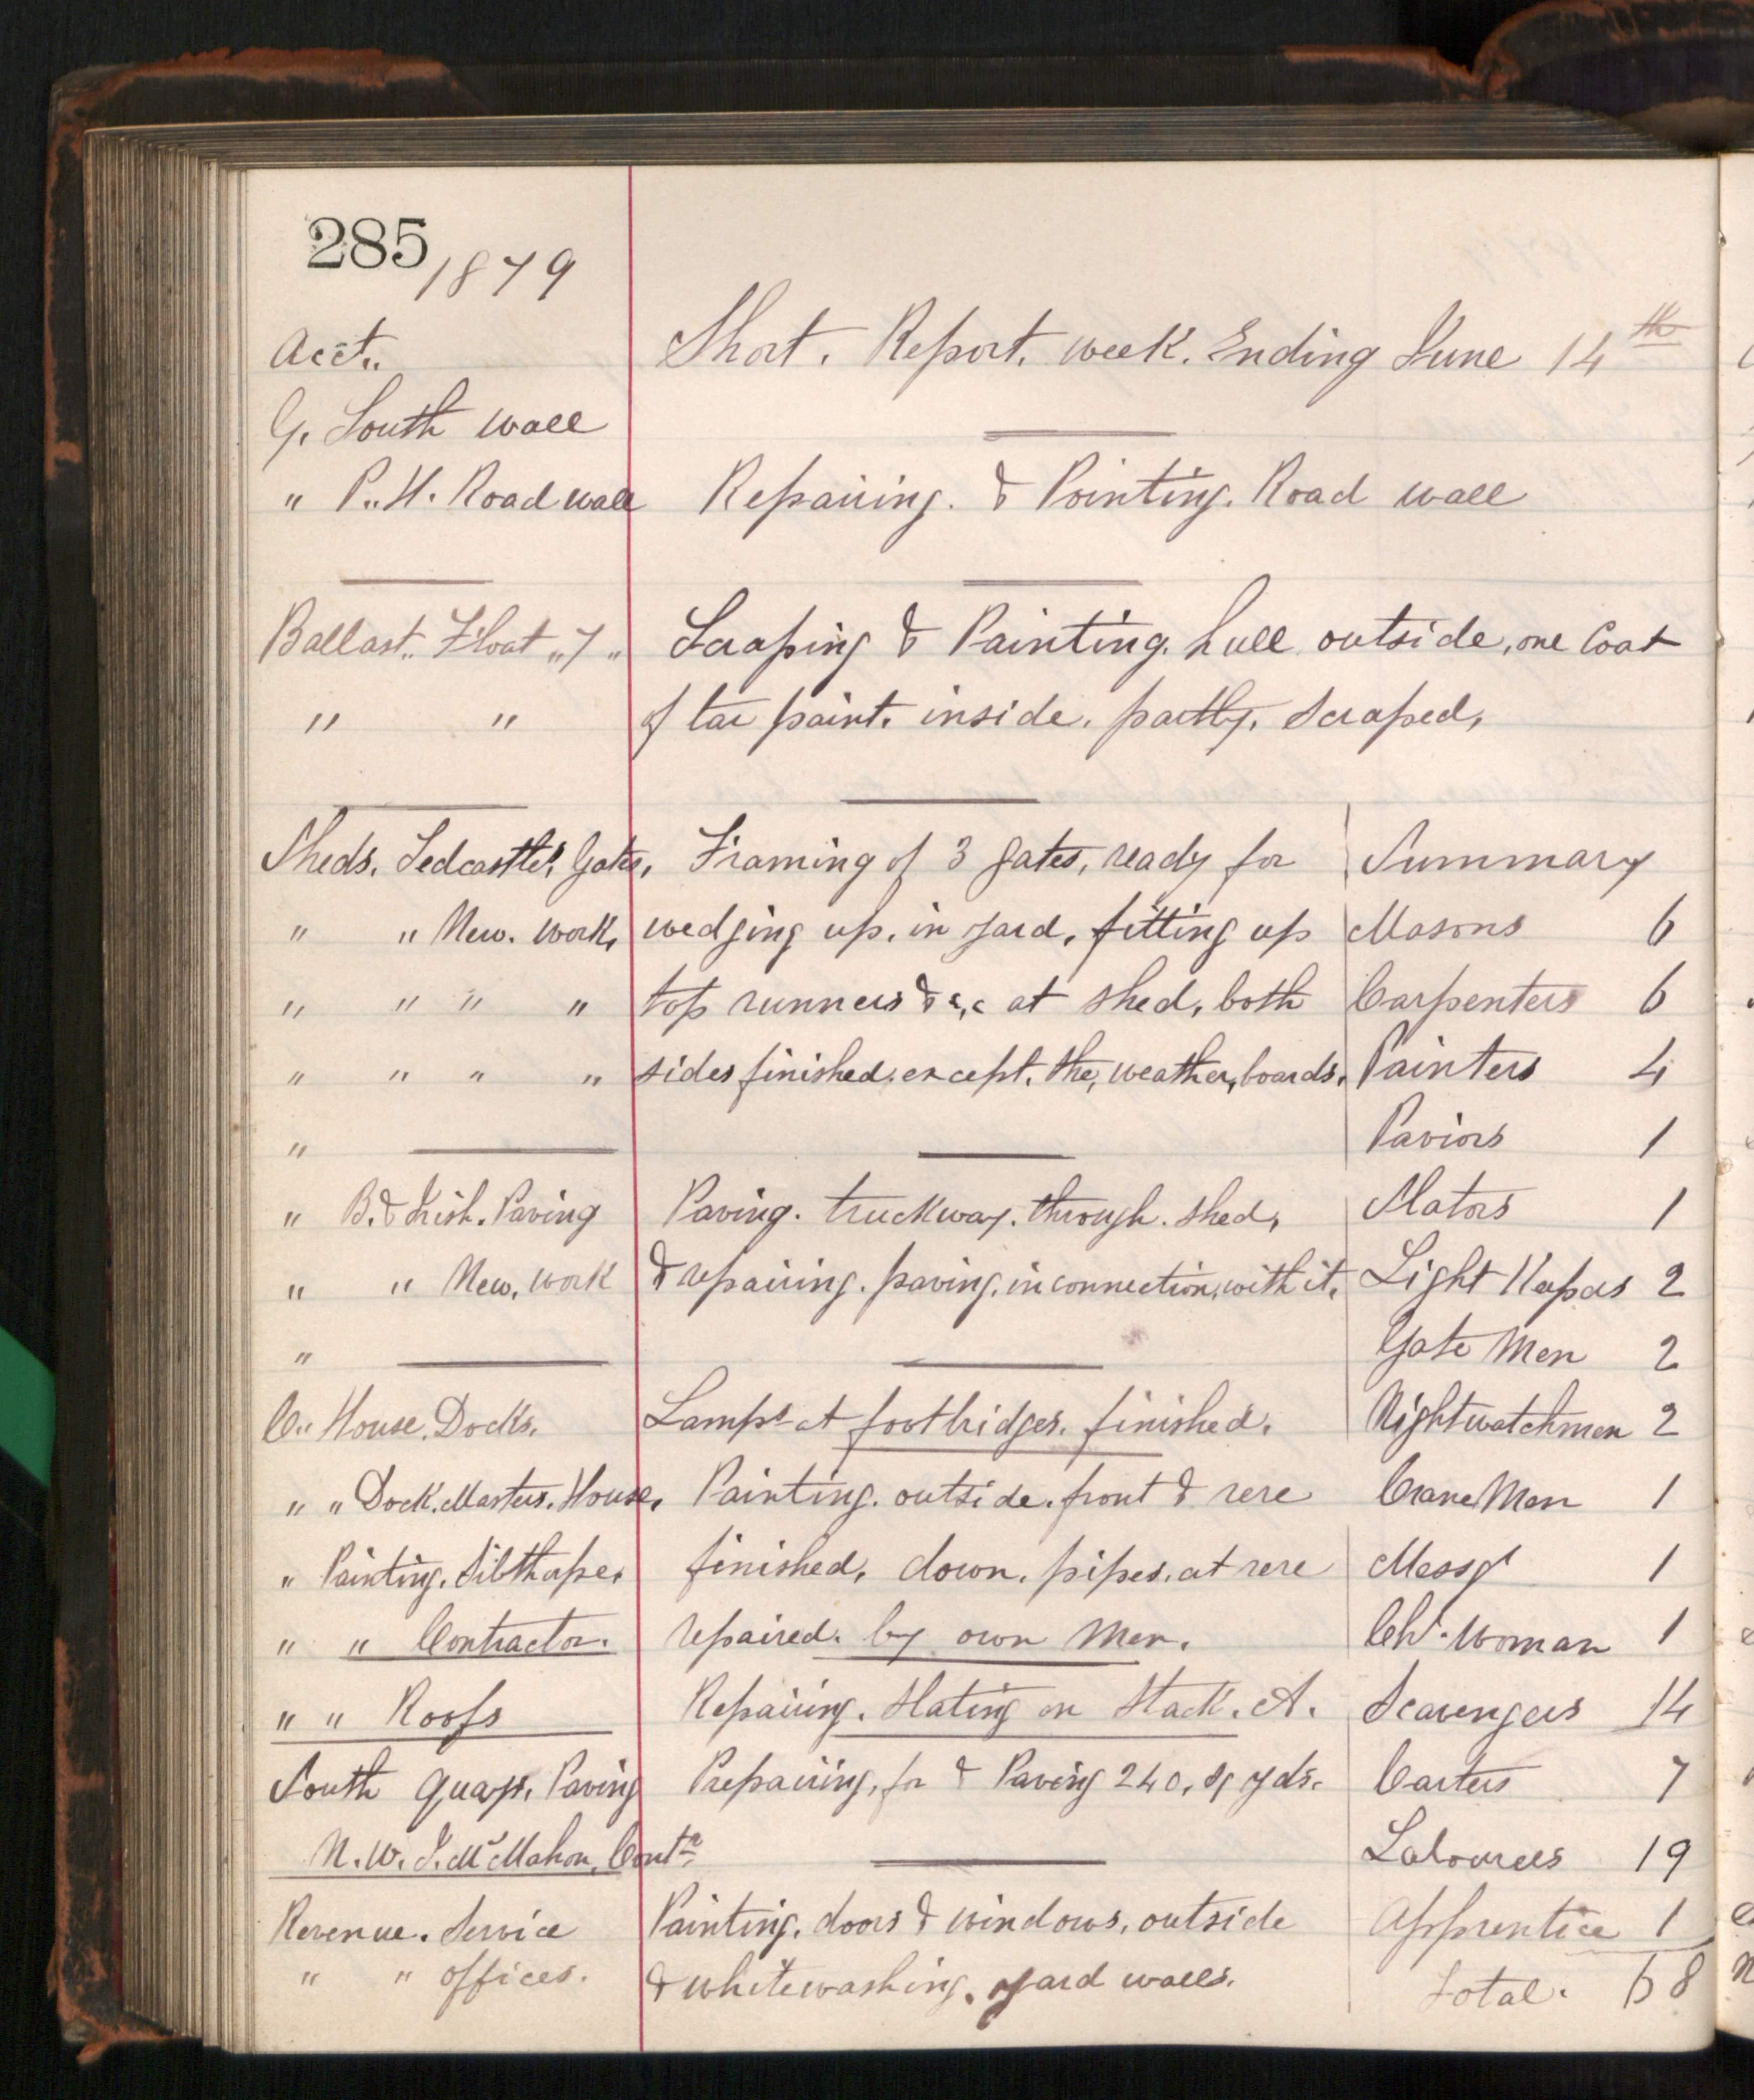 285 1879
Acct.. Short. Report. week. Ending June 14th
G. South wall
" P.. H. Road wall Repairing. & Pointing. Road wall
Ballast.. Float "7" Scraping & Painting. hull outside, one Coat
" " of tar paint. inside. partly. Scraped,
Sheds. Tedcastle's Gates, Framing of 3 gates, ready for Summary
" " New. work, wedging up, in yard, fitting up Masons 6
" " " " top runners &c,c at shed, both Carpenters 6
" " " " sides finished, except, the, weather, boards, Painters 4
" Paviors 1
" B. & Irish. Paving Paving. truckway. through. shed, Slators 1
" " New, work & repairing. paving, in connection, with it, Light Keepers 2
" Gate Men 2
C.. House. Docks. Lamps at footbridges. finished. Nightwatchmen 2
" " Dock. Masters. House, Painting. outside. front & rere Crane Men 1
" Painting. Sibthorpe, finished, down. pipes. at rere Messr 1
" " Contractor. repaired. by own Men. Chr. Woman 1
" " Roofs Repairing. Slating on Stack. A. Scavengers 14
South Quays, Paving Preparing, for & Paving 240, Sq yds. Carters 7
N. W. J. McMahon, Contr. Labourers 19
Revenue. Service Painting, doors & windows, outside Apprentice 1
" " offices. & whitewashing. yard walls. total. 68